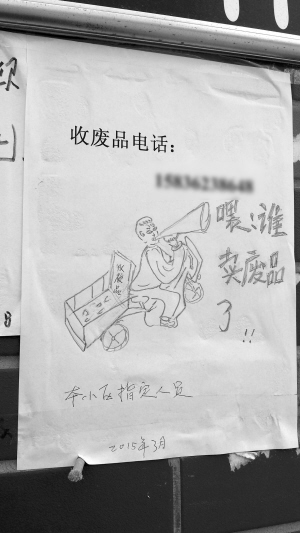 收废品电话：
喂!谁
卖废品
了!!
收废品
本小区指定人员
2015年3月
8